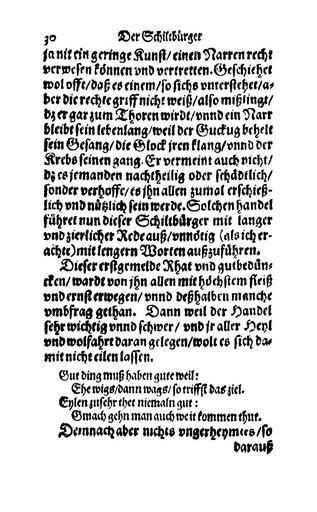 30 Der Schiltbürger
ja nit ein geringe Kunst/einen Narren recht
verwesen können vnd vertretten. Geschiehet
wol offt/daß es einem/so sichs vnterstehet/a-
ber die rechte griff nicht weiß/also mißlingt/
dz er gar zum Thoren wirdt/vnnd ein Narr
bleibt sein lebenlang/weil der Guckug behelt
sein Gesang/die Glock jren klang/vnnd der
Krebs seinen gang. Er vermeint auch nicht/
dz es jemanden nachtheilig oder schädtlich/
sonder verhoffe/es jhn allen zumal erschieß-
lich vnd nützlich sein werde. Solchen handel
führet nun dieser Schiltbürger mit langer
vnd zierlicher Rede auß/vnnötig (als ich er-
achte) mit lengern Worten außzuführen.
Dieser erstgemelde Rhat vnd gutbedün-
cken/wardt von jhn allen mit höchstem fleiß
vnd ernst erwegen/vnnd deßhalben manche
vmbfrag gethan. Dann weil der Handel
sehr wichtig vnnd schwer/vnd jr aller Heyl
vnd wolfahrt daran gelegen/wolt es sich da-
mit nicht eilen lassen.
Gut ding muß haben gute weil:
Ehe wigs/dann wags/so triffst das ziel.
Eylen zusehr thet niemaln gut:
Gmach gehn man auch weit kommen thut.
Demnach aber nichts vngerheymtes/so
darauß